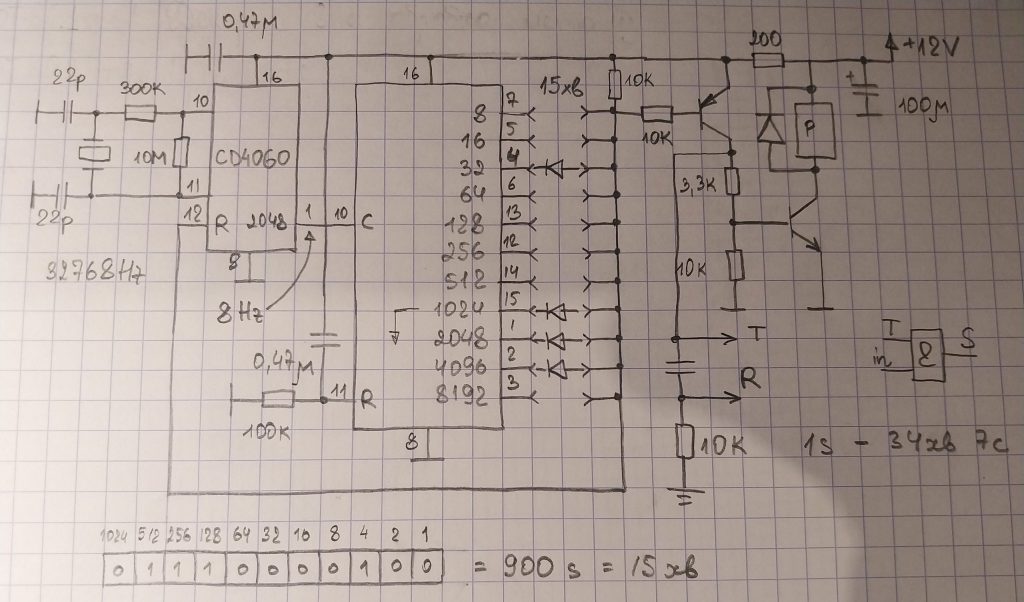 0,47м
+12V
200
16
16
15хв
10K
22p
300K
100м
10
7
8
P
10K
5
16
10M
CD4060
4
32
3,3K
6
64
11
22p
12
R
2048
1
10
C
13
128
12
256
10K
32768Hz
8
14
512
8Hz
15
1024
1
2048
T
T
S
in
Σ
0,47м
2
4096
R
3
8192
11
R
100K
8
10K
1s - 34хв 7с
1024 512 256 128 64 32 16 8 4 2 1
0 1 1 1 0 0 0 0 1 0 0 = 900 s = 15 хв